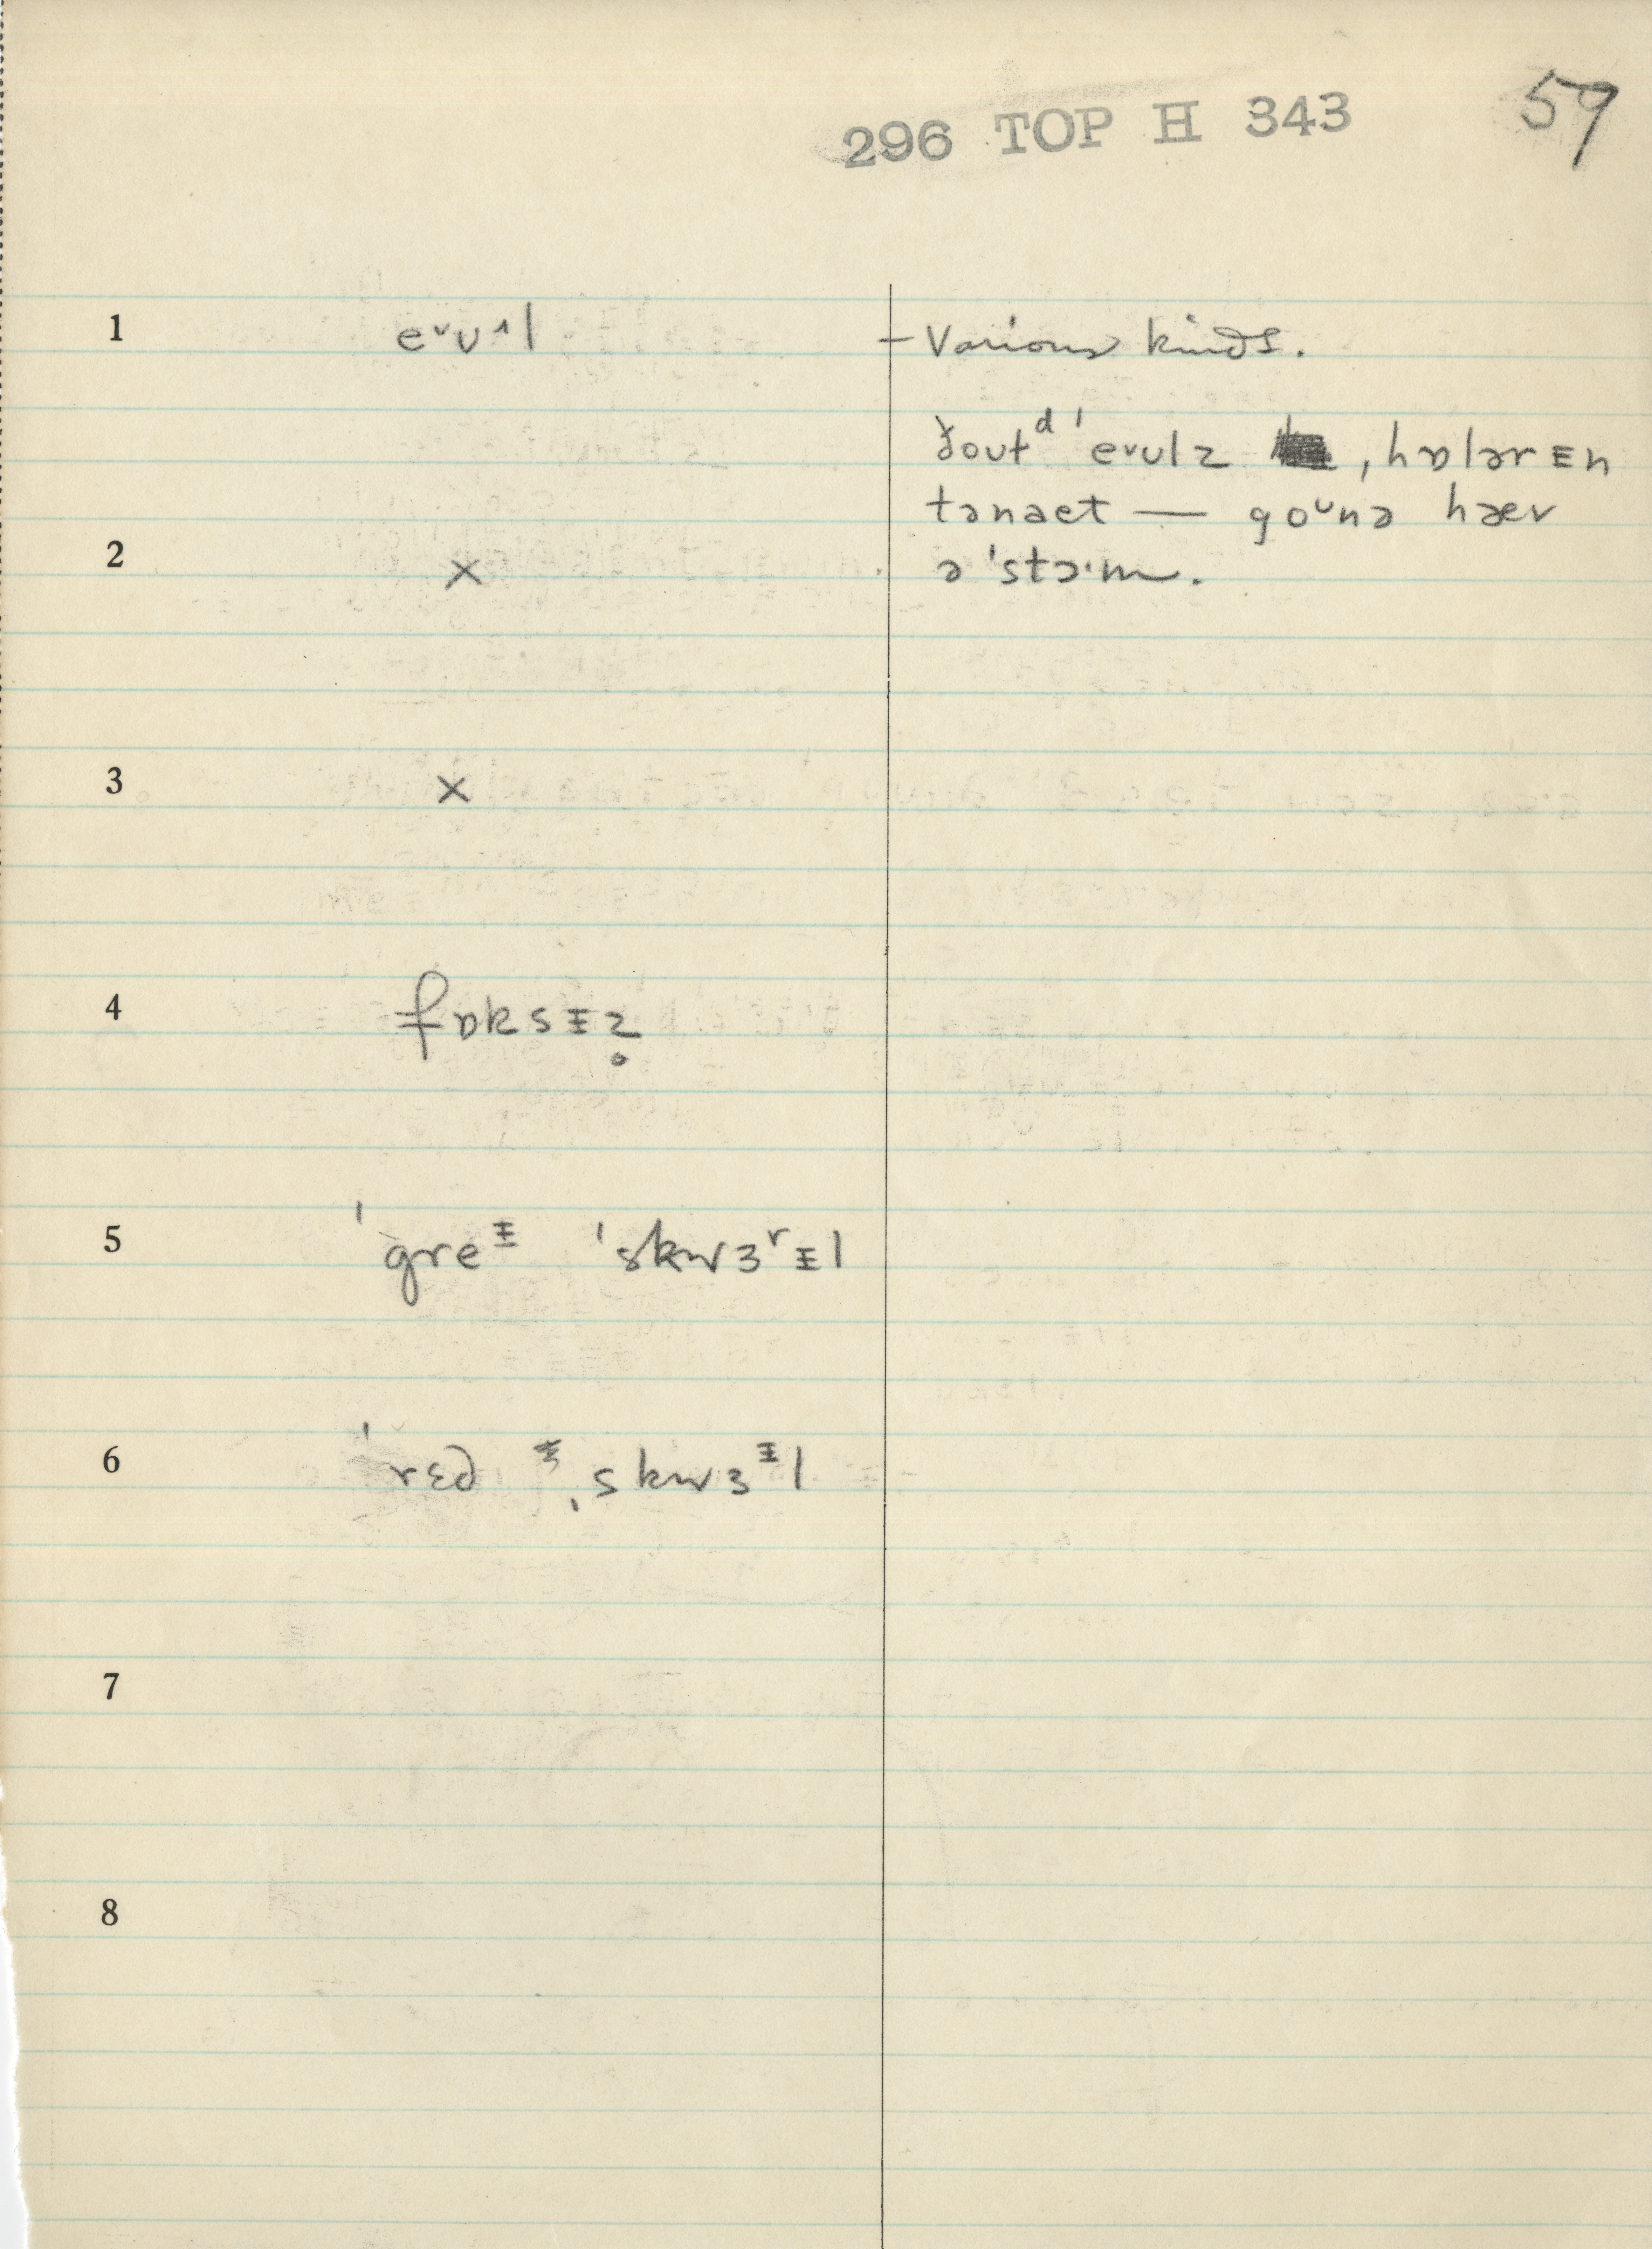 296 TOP H 343 59
1 eᵛʊ^l – Various kinds.
ðouᵗᵈ ˈeᵛʊlz ˌhɒlərɪn
2 × tənaet — goᵘnə hæv
ə ˈstɔˑm.
3 ×
4 fɒksᵻz̥
5 ˈgreᵻ ˈskwɜʳᵻl
6 ˈrɛd ˌskwɜᵻl
7
8